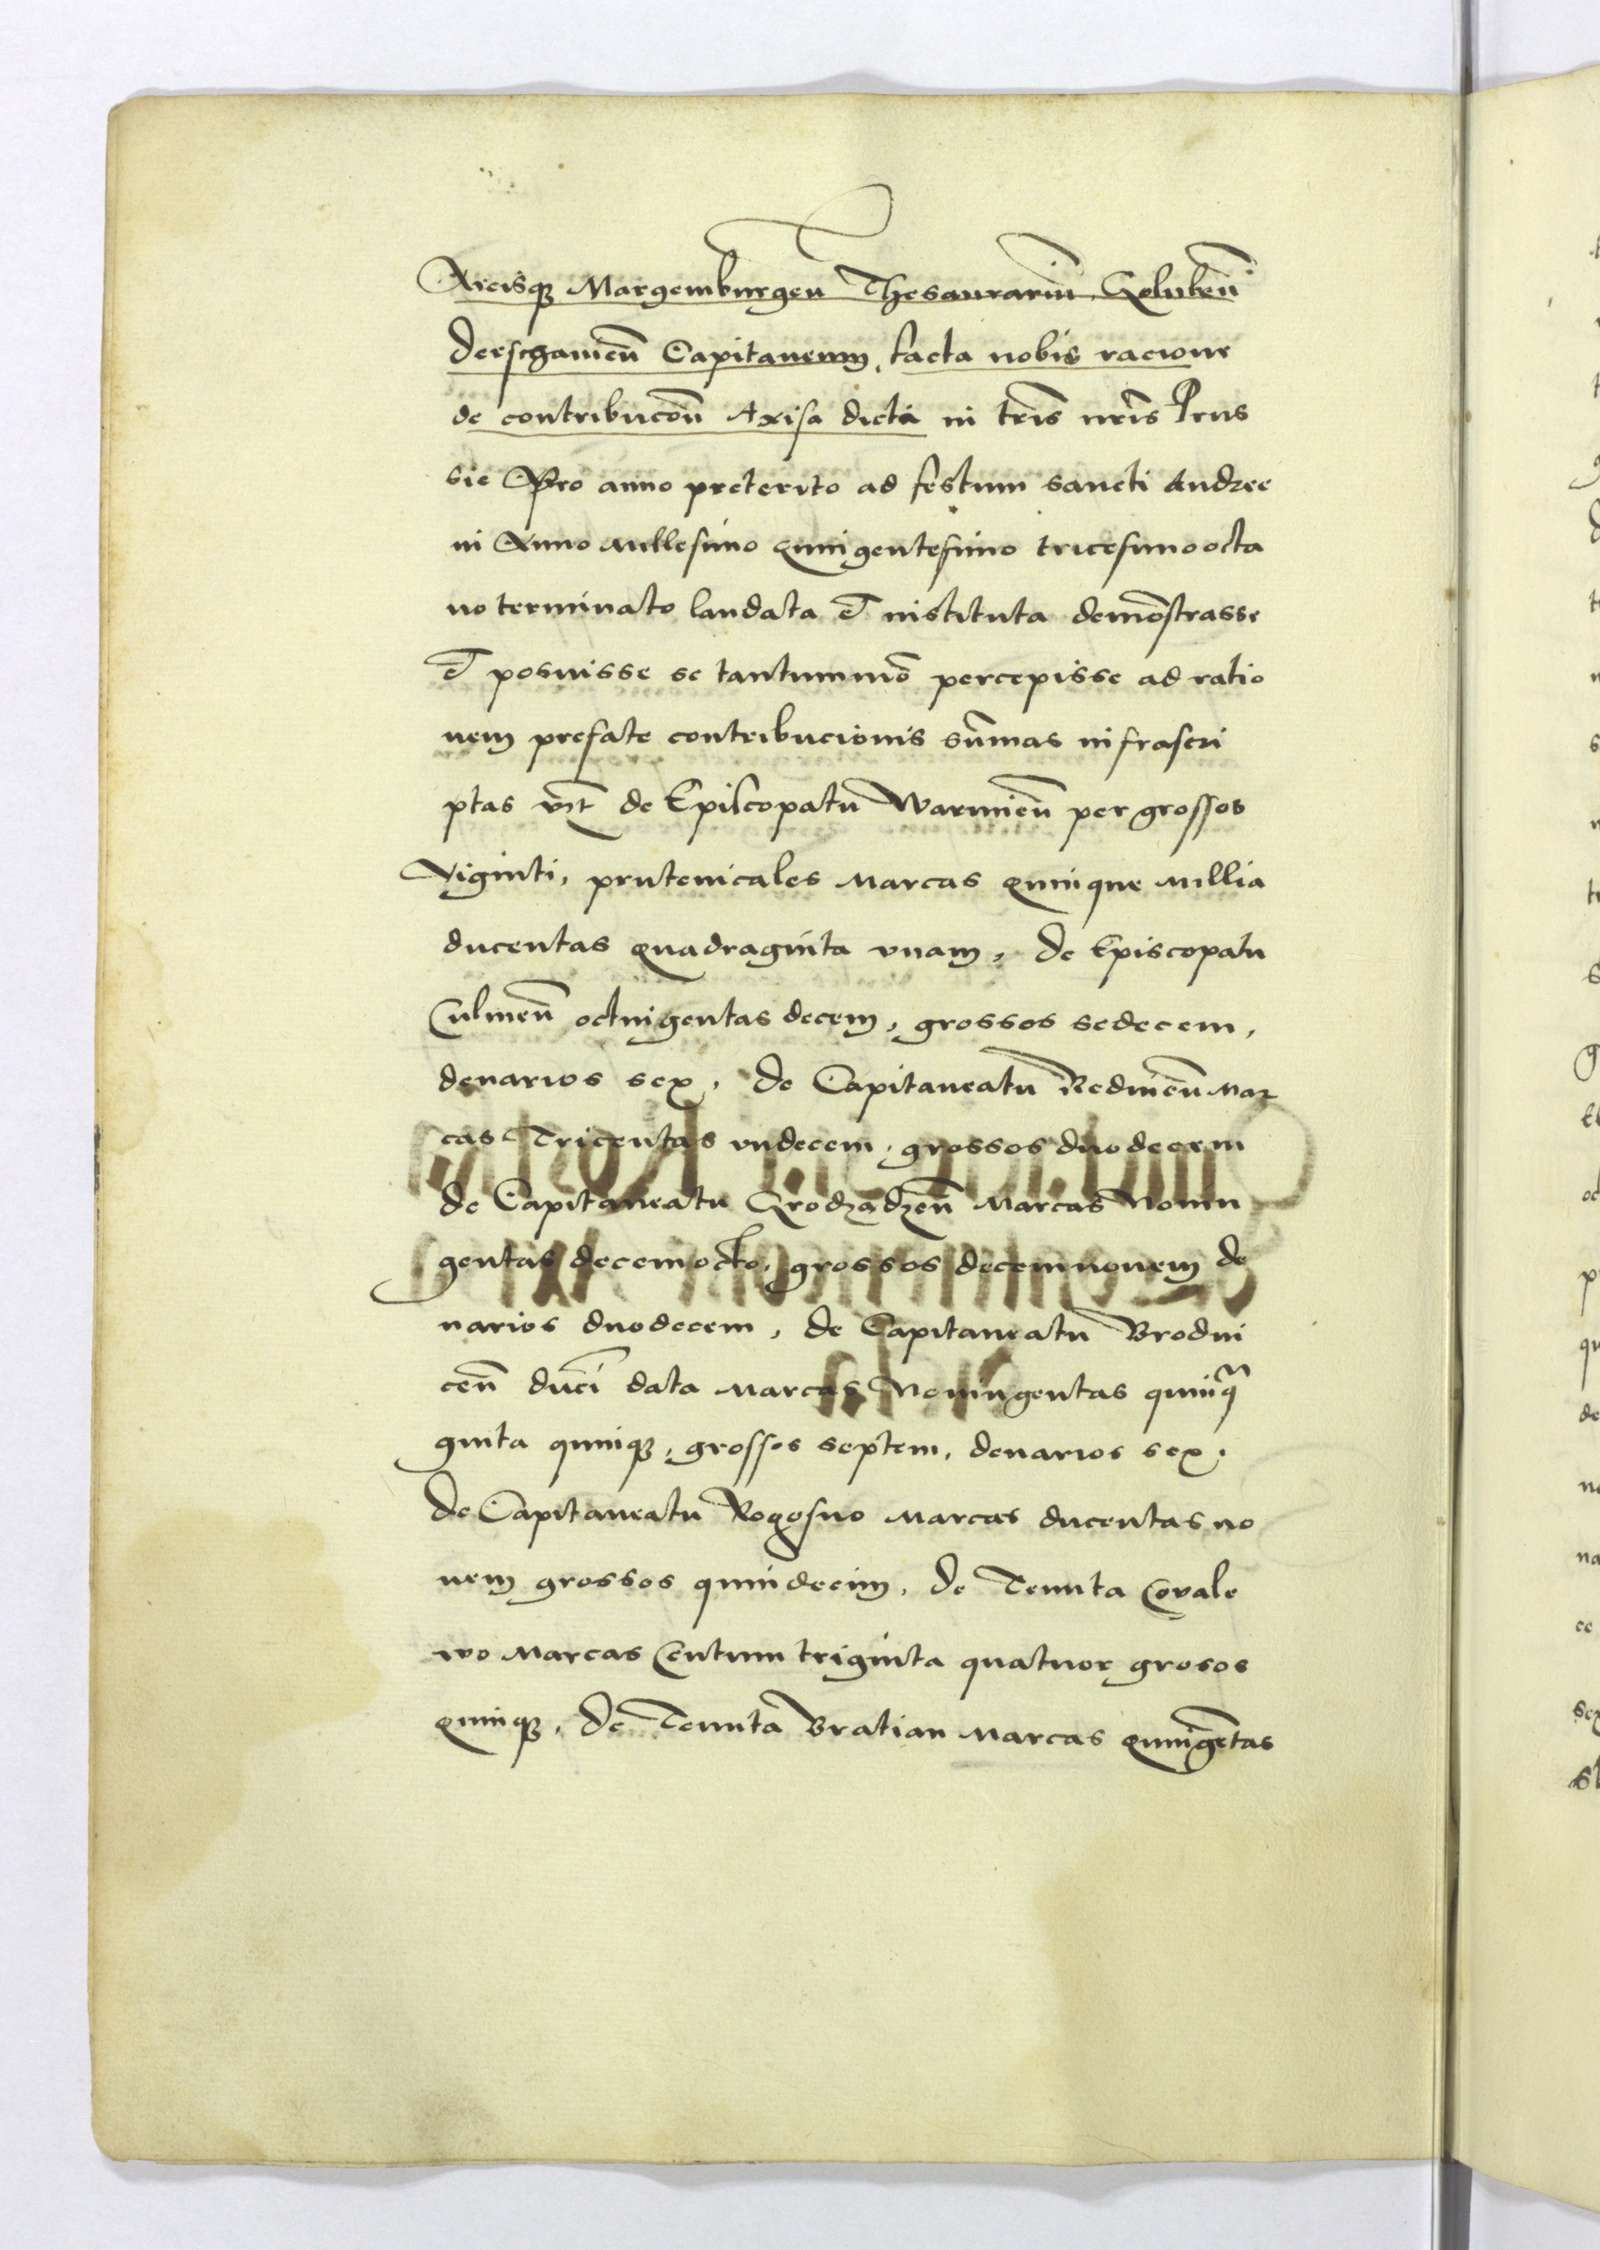 Arcisq3 Margemburgen Thesaurariū, Golubeñ
derschavieñ Capitaneum, facta nobis racione
de contribucōn Axisa dicta in tr̄is nr̄is Prus
sie Pro anno preterito ad festum sancti Andree
in Anno Millesimo Quingentesimo tricesimo octa
uo terminato laudata et instituta demōstrasse
et posuisse se tantummō percepisse ad ratio
nem prefate contribucionis sūmas infrascri
ptas vīt de Episcopatu Warmieñ per grossos
Viginti, prutenicales Marcas Quinque Millia
ducentas quadraginta vnam, de Episcopatu
Culmeñ octingentas decem, grossos sedecem,
denarios sex, de Capitaneatu Redineñ Mar
cas Tricentas vndecem, grossos duodecem
de Capitaneatu Grodządzeñ Marcas Nonin
gentas decemocto, grossos decemnonem de
narios duodecem, de Capitaneatu Brodni
ceñ duci data Marcas Noningentas quinq̃
ginta quinq3, grossos septem, denarios sex,
de Capitaneatu Rogosno Marcas ducentas no
nem grossos quindecim, de Tenuta Covale
wo Marcas Centum triginta quatuor grosos
quinq3, de Tenuta Bratian Marcas quingētas